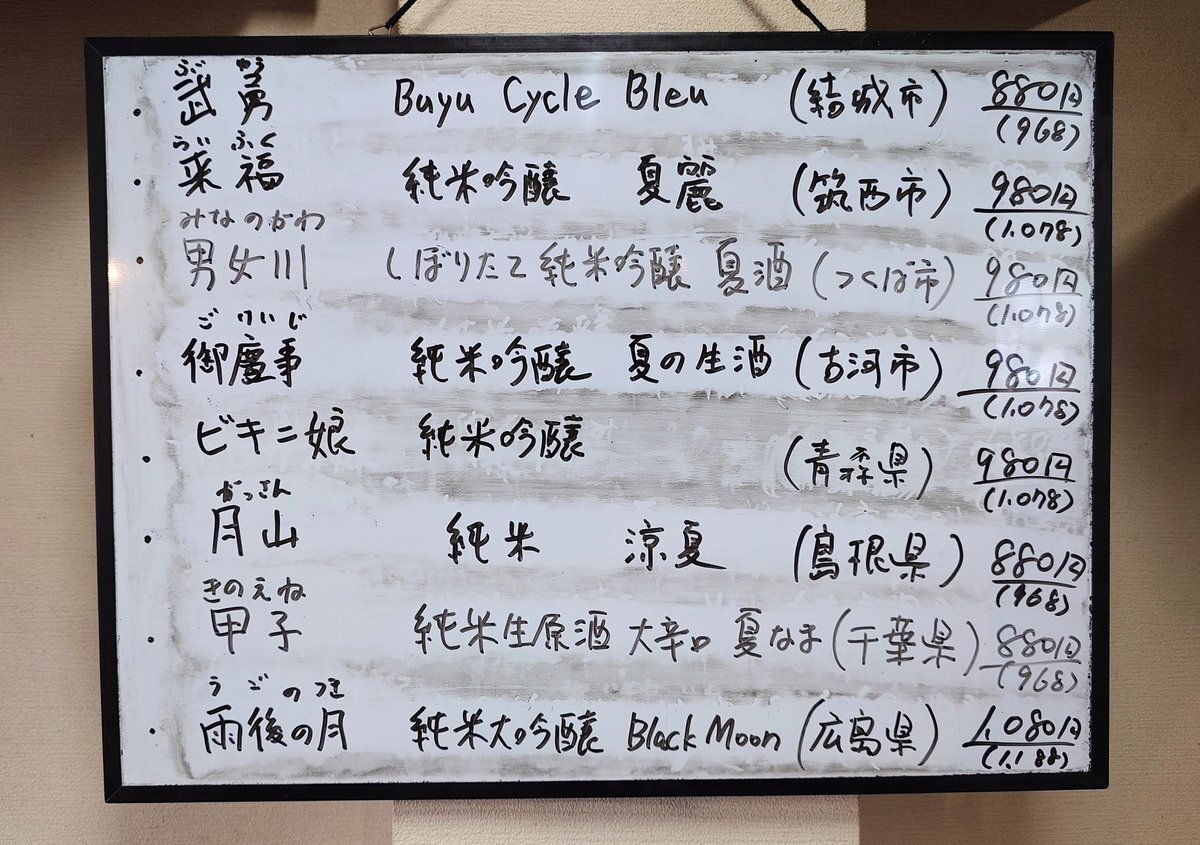 ぶ ゆう
・武勇 Buyu Cycle Bleu (結城市) 880円
(968)
らい ふく
・来福 純米吟醸 夏麗 (筑西市) 980円
(1.078)
みなのかわ
・男女川 しぼりたて 純米吟醸 夏酒 (つくば市) 980円
(1.078)
ご けいじ
・御慶事 純米吟醸 夏の生酒 (古河市) 980円
(1.078)
・ビキニ娘 純米吟醸 (青森県) 980円
(1.078)
がっさん
・月山 純米 涼夏 (島根県) 880円
(968)
きのえね
・甲子 純米生原酒 大辛口 夏なま (千葉県) 880円
(968)
う ご の つき
・雨後の月 純米大吟醸 Black Moon (広島県) 1.080円
(1.188)